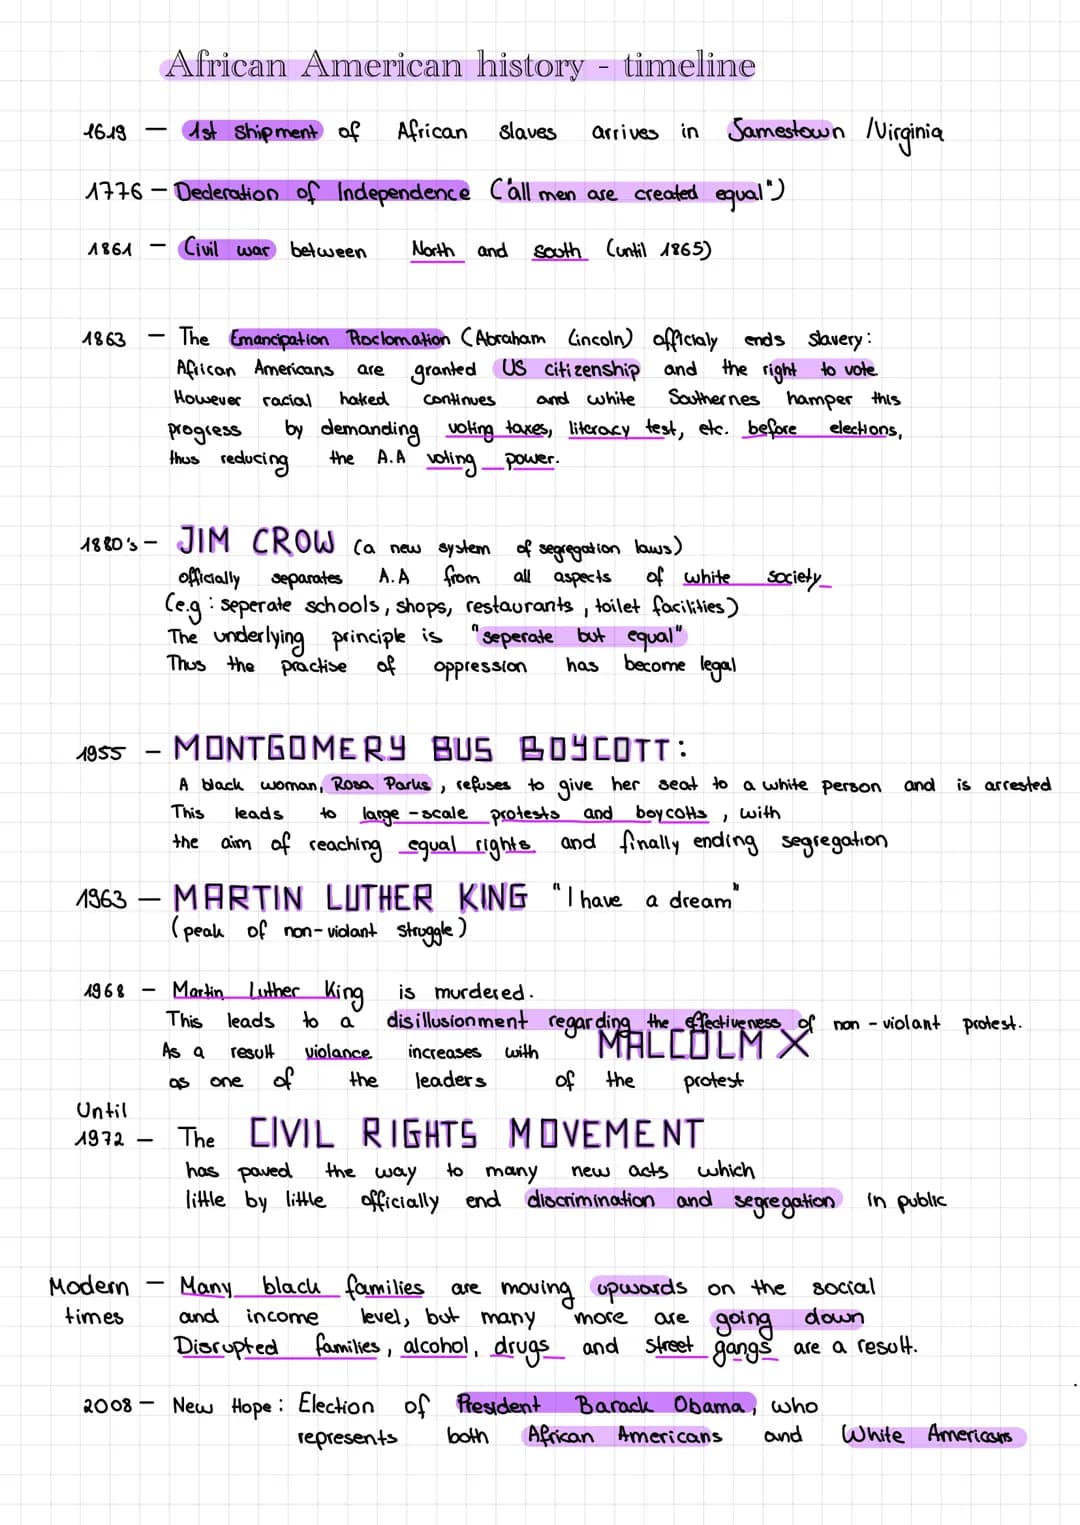 African American history - timeline
1619 - 1st shipment of African slaves arrives in Jamestown /Virginia
1776 - Decleration of Independence ("all men are created equal")
1861 - Civil war between North and South (until 1865)
1863 - The Emancipation Proclomation (Abraham Lincoln) officialy ends slavery:
African Americans are granted US citizenship and the right to vote
However racial hatred continues and white Southernes hamper this
progress by demanding voting taxes, literacy test, etc. before elections,
thus reducing the A.A voting power.
1880's - JIM CROW (a new system of segregation laws)
officially separates A.A from all aspects of white society
(e.g: seperate schools, shops, restaurants, toilet facilities)
The underlying principle is "seperate but equal"
Thus the practise of oppression has become legal
1955 - MONTGOMERY BUS BOYCOTT:
A black woman, Rosa Parks, refuses to give her seat to a white person and is arrested
This leads to large-scale protests and boycotts, with
the aim of reaching equal rights and finally ending segregation
1963 - MARTIN LUTHER KING "I have a dream"
(peak of non-violant struggle)
1968 - Martin Luther King is murdered.
This leads to a disillusionment regarding the effectiveness of non-violant protest.
As a result violance increases with MALCOLM X
as one of the leaders of the protest
Until
1972 - The CIVIL RIGHTS MOVEMENT
has paved the way to many new acts which
little by little officially end discrimination and segregation in public
Modern - Many black families are moving upwards on the social
times and income level, but many more are going down
Disrupted families, alcohol, drugs and street gangs are a result.
2008 - New Hope: Election of President Barack Obama, who
represents both African Americans and White Americans